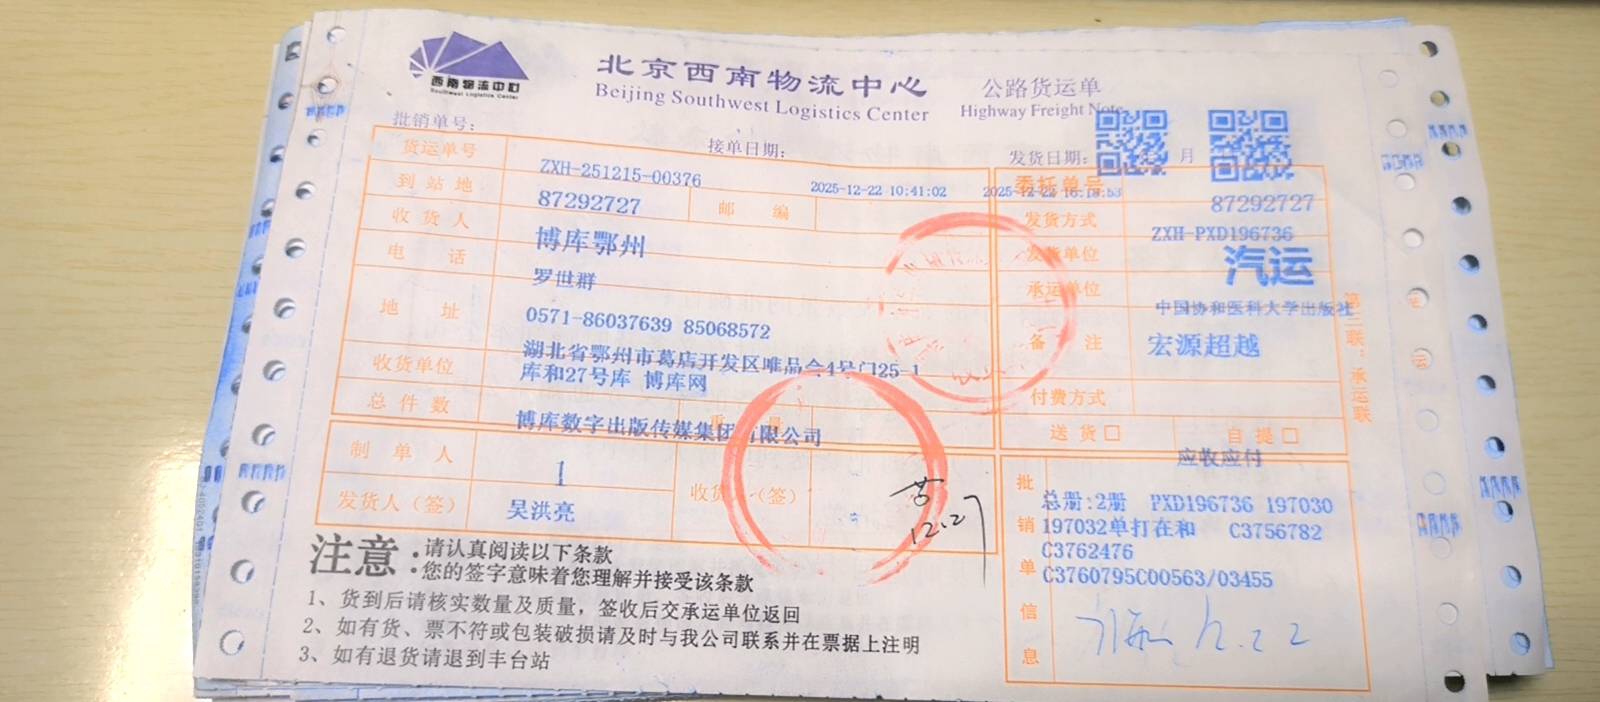 西南物流中心
Southwest Logistics Center
北京西南物流中心
Beijing Southwest Logistics Center
公路货运单
Highway Freight Note
批销单号：
接单日期：
发货日期： 月
货运单号 ZXH-251215-00376
2025-12-22 10:41:02 2025-12-22 16:19:53
委托单号 87292727
到站地 87292727 邮编
发货方式 ZXH-PXD196736
收货人 博库鄂州
发货单位 汽运
电话 罗世群
承运单位 中国协和医科大学出版社
地址 0571-86037639 85068572
备注 宏源超越
湖北省鄂州市葛店开发区唯品会4号门25-1
库和27号库 博库网
收货单位
付费方式
总件数 博库数字出版传媒集团有限公司 重量
送货□ 自提□
应收应付
制单人 1
收货人（签）
12.27
发货人（签） 吴洪亮
批销单信息
总册:2册 PXD196736 197030
197032单打在和 C3756782
C3762476
C3760795C00563/03455
12.22
第三联：承运联
注意：
请认真阅读以下条款
您的签字意味着您理解并接受该条款
1、货到后请核实数量及质量，签收后交承运单位返回
2、如有货、票不符或包装破损请及时与我公司联系并在票据上注明
3、如有退货请退到丰台站